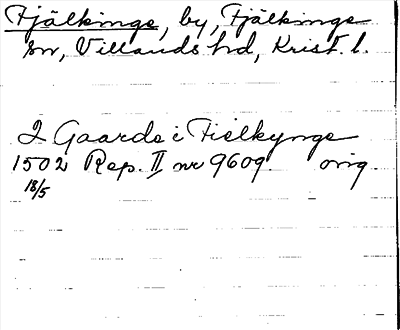 Fjälkinge, by, Fjälkinge
sn, Villands hd, Krist. l.
2 Gaarde i Fielkynge
1502 Rep. II nr 9609. orig.
18/5